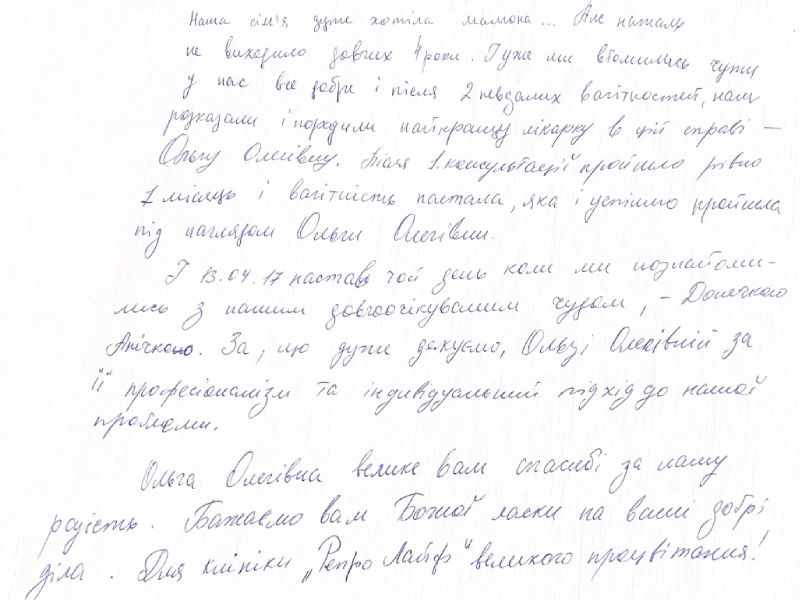 Наша сім'я дуже хотіла малюка... Але нажаль
не виходило довгих 4 роки. І уже ми втомились чути
у нас все добре і після 2 невдалих вагітностей, нам
розказали і порадили найкращу лікарку в цій справі –
Ольгу Олегівну. Після 1. консультації пройшло рівно
1 місяць і вагітність настала, яка і успішно пройшла
під наглядом Ольги Олегівни.
І 13.04.17 настав той день коли ми познайоми-
лись з нашим довгоочікуваним чудом, – Донечкою
За, що дуже дякуємо, Ользі Олегівній за
її професіоналізм та індивідуальний підхід до нашої
проблеми.
Ольга Олегівна велике вам спасибі за нашу
радість. Бажаємо вам Божої ласки на ваші добрі
діла. Для клініки „Репро Лайф" великого процвітання!